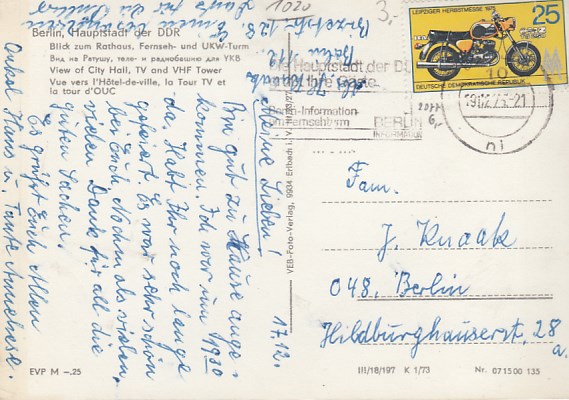 Berlin, Hauptstadt der DDR
Blick zum Rathaus, Fernseh- und UKW-Turm
Вид на Ратушу, теле- и радиобашню для УКВ
View of City Hall, TV and VHF Tower
Vue vers l'Hôtel-de-ville, la Tour TV et
la tour d'OUC
1020
3,-
LEIPZIGER HERBSTMESSE 1975
25
DEUTSCHE DEMOKRATISCHE REPUBLIK
Die Hauptstadt der D
ihre Gäste
Berlin-Information
am Fernsehturm
BERLIN
INFORMATION
-21
6,-
17.12.
Meine Lieben!
Bin gut zu Hause ange-
kommen. Ich war um 19³⁰
da. Habt Ihr noch lange
gefeiert. Es war sehr schön
bei Euch. Nochmals vielen,
vielen Dank für all die
guten Sachen.
Es grüßt Euch Allen
Onkel Hans u. Tante Anneliese.
VEB-Foto-Verlag, 9934 Erlbach i. V.
Fam.
J. Knaak
048. Berlin
Hildburghauserstr. 28
a.
EVP M -.25
III/18/197 K 1/73
Nr. 071500 135